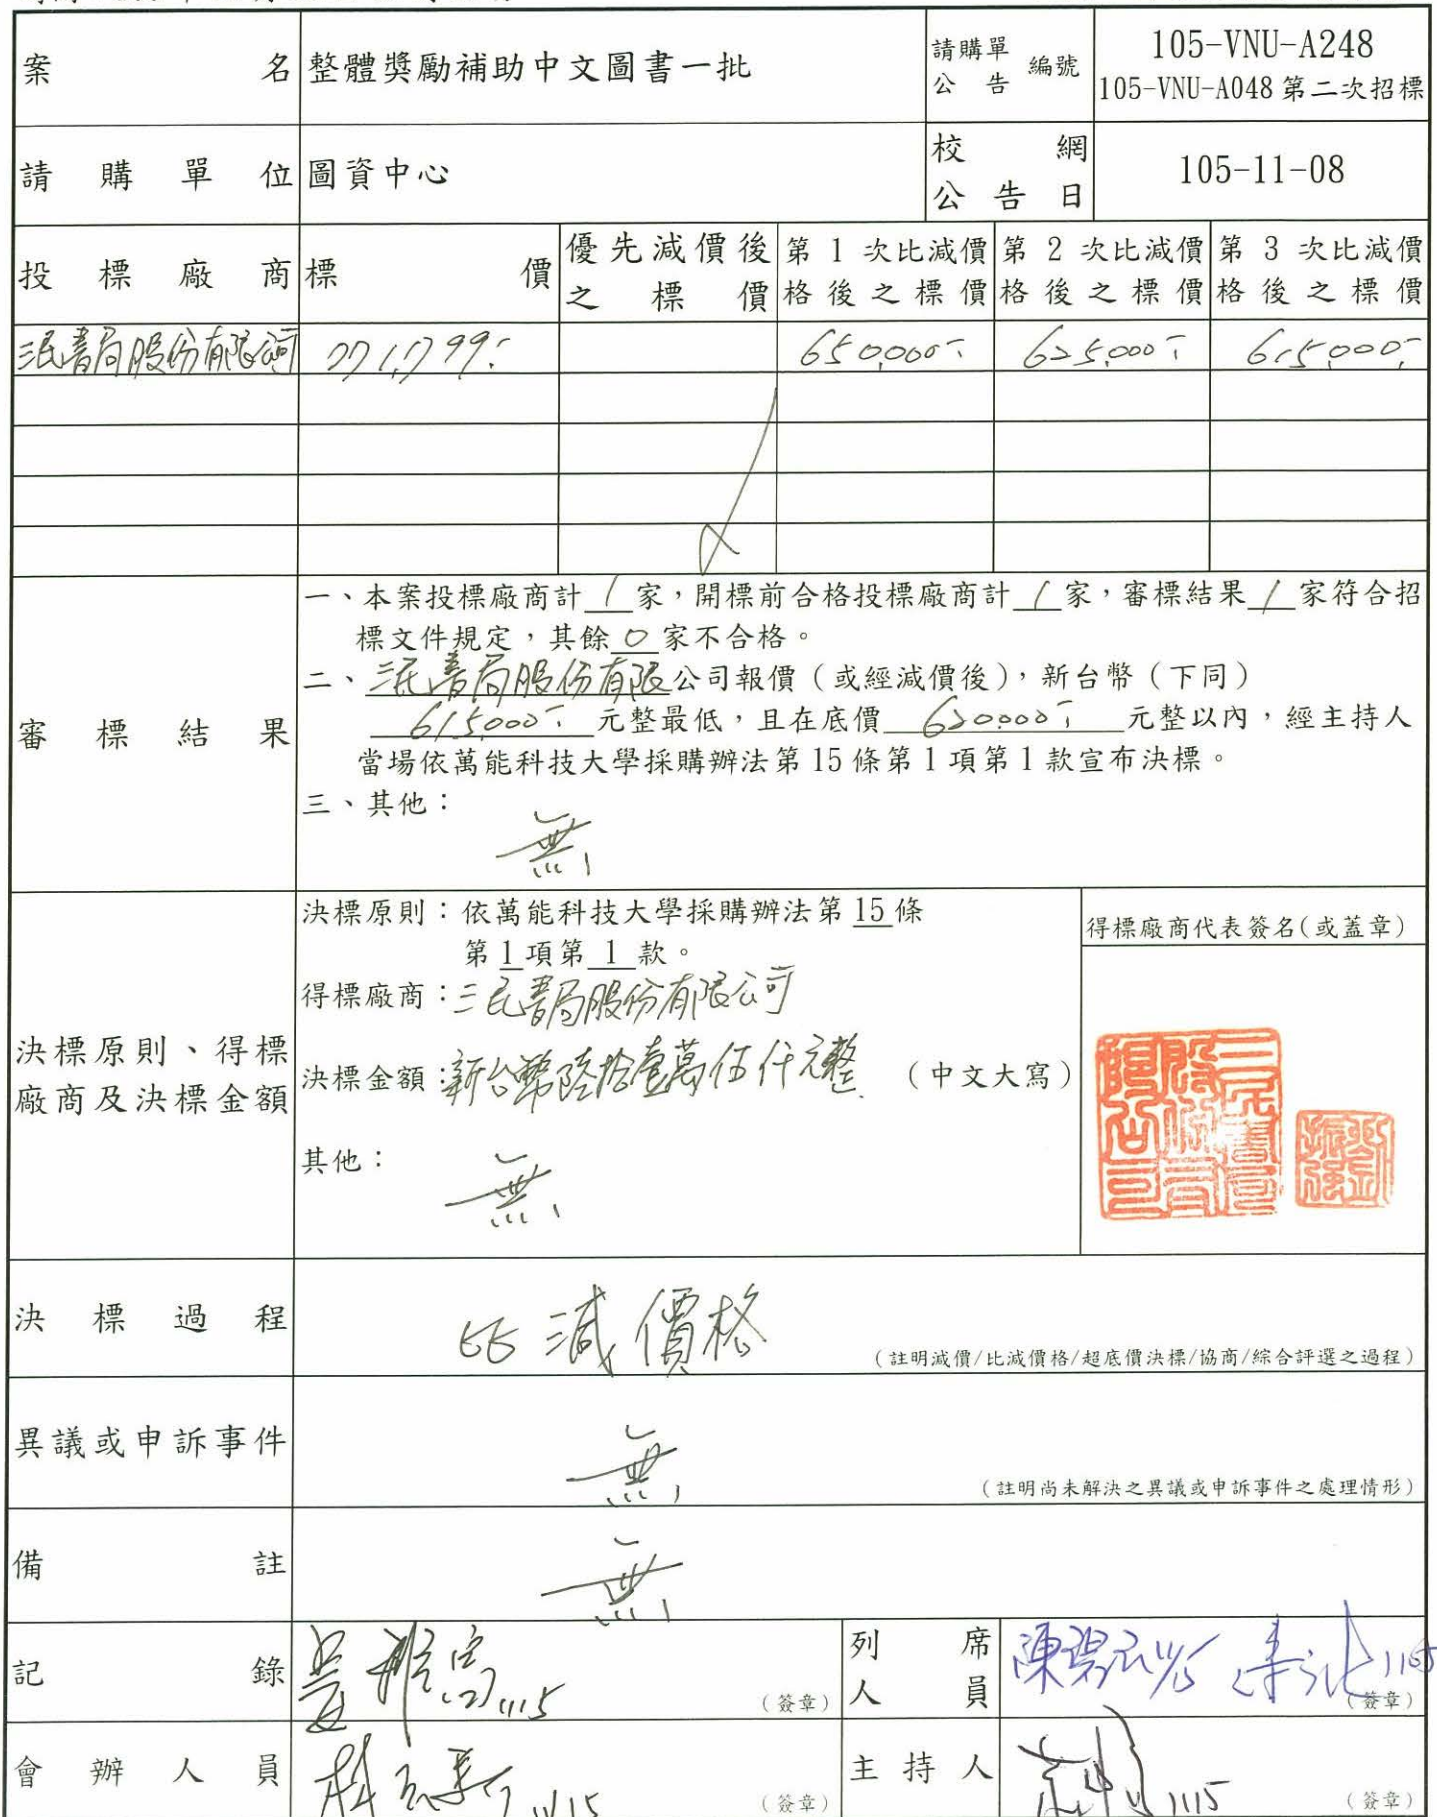 案名 整體獎勵補助中文圖書一批
請購單公告編號
105-VNU-A248
105-VNU-A048 第二次招標
請購單位 圖資中心
校網公告日 105-11-08
投標廠商
標價
優先減價後之標價
第 1 次比減價格後之標價
第 2 次比減價格後之標價
第 3 次比減價格後之標價
三民書局股份有限公司 771,799.- 650,000.- 625,000.- 615,000.-
審標結果
一、本案投標廠商計 1 家，開標前合格投標廠商計 1 家，審標結果 1 家符合招
標文件規定，其餘 0 家不合格。
二、三民書局股份有限公司報價（或經減價後），新台幣（下同）
615,000.- 元整最低，且在底價 620,000.- 元整以內，經主持人
當場依萬能科技大學採購辦法第 15 條第 1 項第 1 款宣布決標。
三、其他：
無
決標原則、得標
廠商及決標金額
決標原則：依萬能科技大學採購辦法第 15 條
第 1 項第 1 款。
得標廠商：三民書局股份有限公司
決標金額：新台幣陸拾壹萬伍仟元整（中文大寫）
其他：
無
得標廠商代表簽名(或蓋章)
三民書局股份有限公司
劉振強
決標過程
比減價格
（註明減價/比減價格/超底價決標/協商/綜合評選之過程）
異議或申訴事件
無
（註明尚未解決之異議或申訴事件之處理情形）
備註
無
記錄
1115
（簽章）
列席人員
1115
（簽章）
會辦人員
1115
（簽章）
主持人
1115
（簽章）